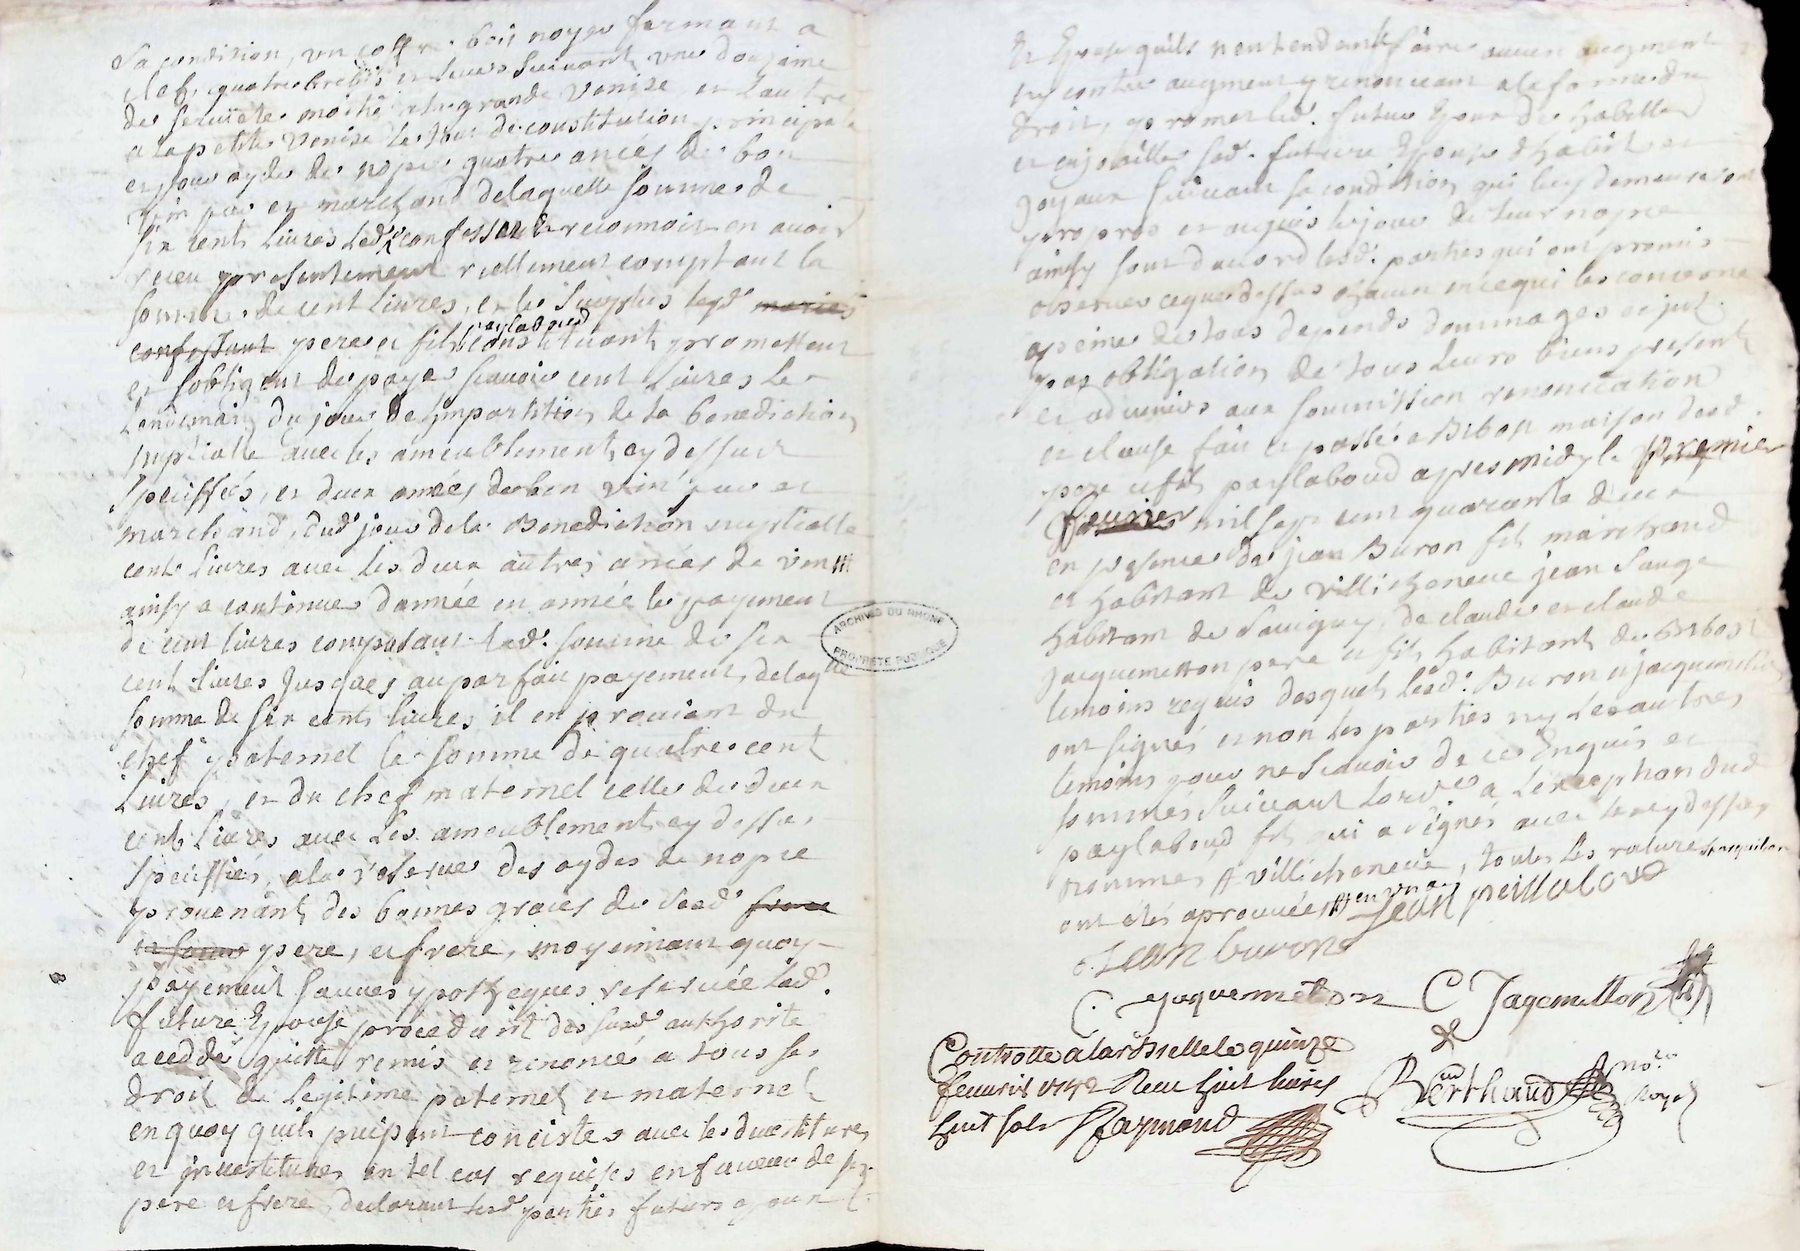 sa condition, un coffre bois noyer fermant a
clef, quatre brebis et leurs suivant, une douzaine
de serviete moitié a la grande venise et l'autre
a la petite venise le tout de constitution principale
et pour ayde de nopce quatre anées de bon
vin pur et marchand de laquelle somme de
six cents livres led. confesse et reconnoit en avoir
receu presentement reellement comptant la
somme de cent livres, et le surplus lesd. mariés
confessant pere et fils paylaboud constituant promettent
et sobligent de payer scavoir cent livres le
lendemain du jour de limpartition de la benediction
nuptialle avec les ameublements cy dessus
speciffiés, et deux anées de bon vin pur et
marchand, dud. jour de la Benediction nuptialle
cent livres avec les deux autres anées de vin
ainsy a continuer d'année en année le payement
de cent livres composant lad. somme de six
cent livres jusques au parfait payement, de laqlle
somme de six cents livres il en provient du
chef paternel la somme de quatre cent
livres, et du chef maternel celle de deux
cents livres avec les ameublements cy dessus
speciffiés, a la reserve des aydes de nopce
provenant des bonnes graces de sesd. frere
et soeur pere, et frere, moyennant quoy
payement sauves ypotheques reservée lad.
future Epouse procedant des susd. authorité
a ceddé quitté remis et renoncé a tous ses
droit de legitime paternel et maternel
en quoy quils puissent concister avec les devestitures
et investitures en tel cas requises en faveur de ses
pere et frere, declarant lesd. parties futurs epoux
et Epouse quils n'entendent faire aucun augment
ny contre augment y renoncant a la forme du
droit, promet led. futur Epoux de habiller
et enjoailler sad. future Epouse d'habits et
joyaux suivant sa condition qui luy demeureront
propres et acquis le jour de leur nopce
ainsy sont d'acord lesd. parties qui ont promis
observer ce que dessus chacun en ce qui les concerne
a peine de tous depends dommages et jnt.
par obligation de tous leurs biens present
et advenirs aux soumission renonciation
et clause fait et passé a Bibost maison desd.
pere et fils paylaboud apres midy le Premier
fevrier mil sept cent quarante deux
en presence de jean Buron fils marchand
et habitant de villicheneve jean Sauge
habitant de Savigny, de claude et claude
jacquemetton pere et fils habitant de Bibost
temoins requis desquels lesd. Buron et jacquemetton
ont signés et non les parties ny les autres
temoins pour ne scavoir de ce Enquis et
sommes suivant lordce a l'exception dud.
paylaboud fils qui a signé avec les cy dessus
nommes a villicheneve, toutes les ratures
ont étés aprouvées Jean peillaloud
Jean buron
C. Jaquemeton C Jaqemetton
Controllé a larbrelle le quinze
fevrier 1742 Receu huit livres
huit sols Raymond
Berthaud nore
Royal
ARCHIVES DU RHONE
PROPRIÉTÉ PUBLIQUE